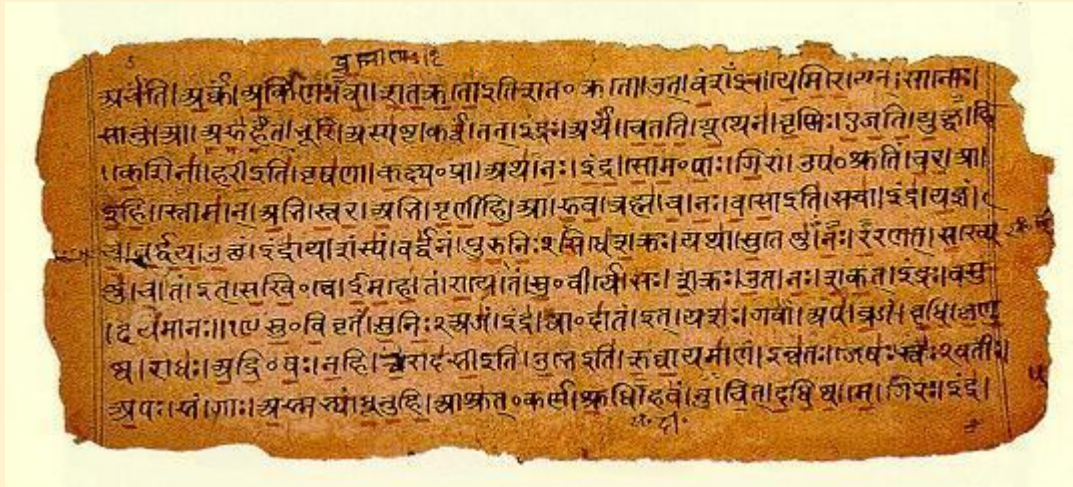 अर्चंति। अर्कं। अर्किणः। त्वा। शतक्रतो इति शत॰क्रतो। उत्। वंशंऽइव। येमिरे। यत्। सानोः।
सानुं। आ। अरुहत्। भूरि। अस्पष्ट। कर्त्वं। तत्। इंद्रः। अर्थं। चेतति। यूथेन। वृष्णिः। एजति। युक्ष्व। हि
। केशिना। हरी इति। वृषणा। कक्ष्य॰प्रा। अथ। नः। इंद्र। सोम॰पाः। गिरां। उप॰श्रुतिं। चर। आ।
इहि। स्तोमान्। अभि। स्वर। अभि। गृणीहि। आ। रुव। ब्रह्म। च। नः। वसो इति। सचा। इंद्र। यज्ञं।
च। वर्द्धय। उक्थं। इंद्राय। शंस्यं। वर्द्धनं। पुरुनिःऽसिधे। शक्रः। यथा। सुतेषु। नः। ररणत्। सख्ये
षु। च। तं। इत्। सखि॰त्वे। ईमहे। तं। राये। तं। सु॰वीर्ये। सः। शक्रः। उत। नः। शकत्। इंद्रः। वसु
। दयमानः॥ १९ सु॰विवृतं। सुनिःऽअजं। इंद्र। त्वा॰दातं। इत्। यशः। गवां। अप। व्रजं। वृधि। कृणु
ष्व। राधः। अद्रि॰वः। नहि। त्वा। रोदसी इति। उभे इति। ऋघायमाणं। इन्वतः। जेषः। स्वःऽवतीः।
अपः। सं। गाः। अस्मभ्यं। धूनुहि। आश्रुत्॰कर्ण। श्रुधि। हवं। नु। चित्। दधिष्व। मे। गिरः। इंद्र।